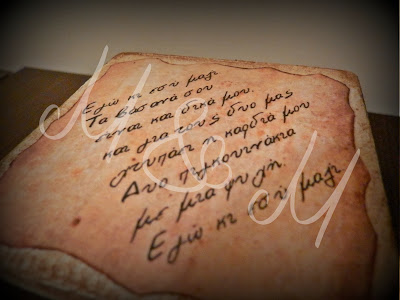 Εγώ κι εσύ μαζί
Τα βάσανά σου
είναι και δικά μου.
και για τους δυο μας
χτυπάει η καρδιά μου
Δυο πιγκουινάκια
μισ μια φυλή.
Εγώ κι εσύ μαζί
M & M